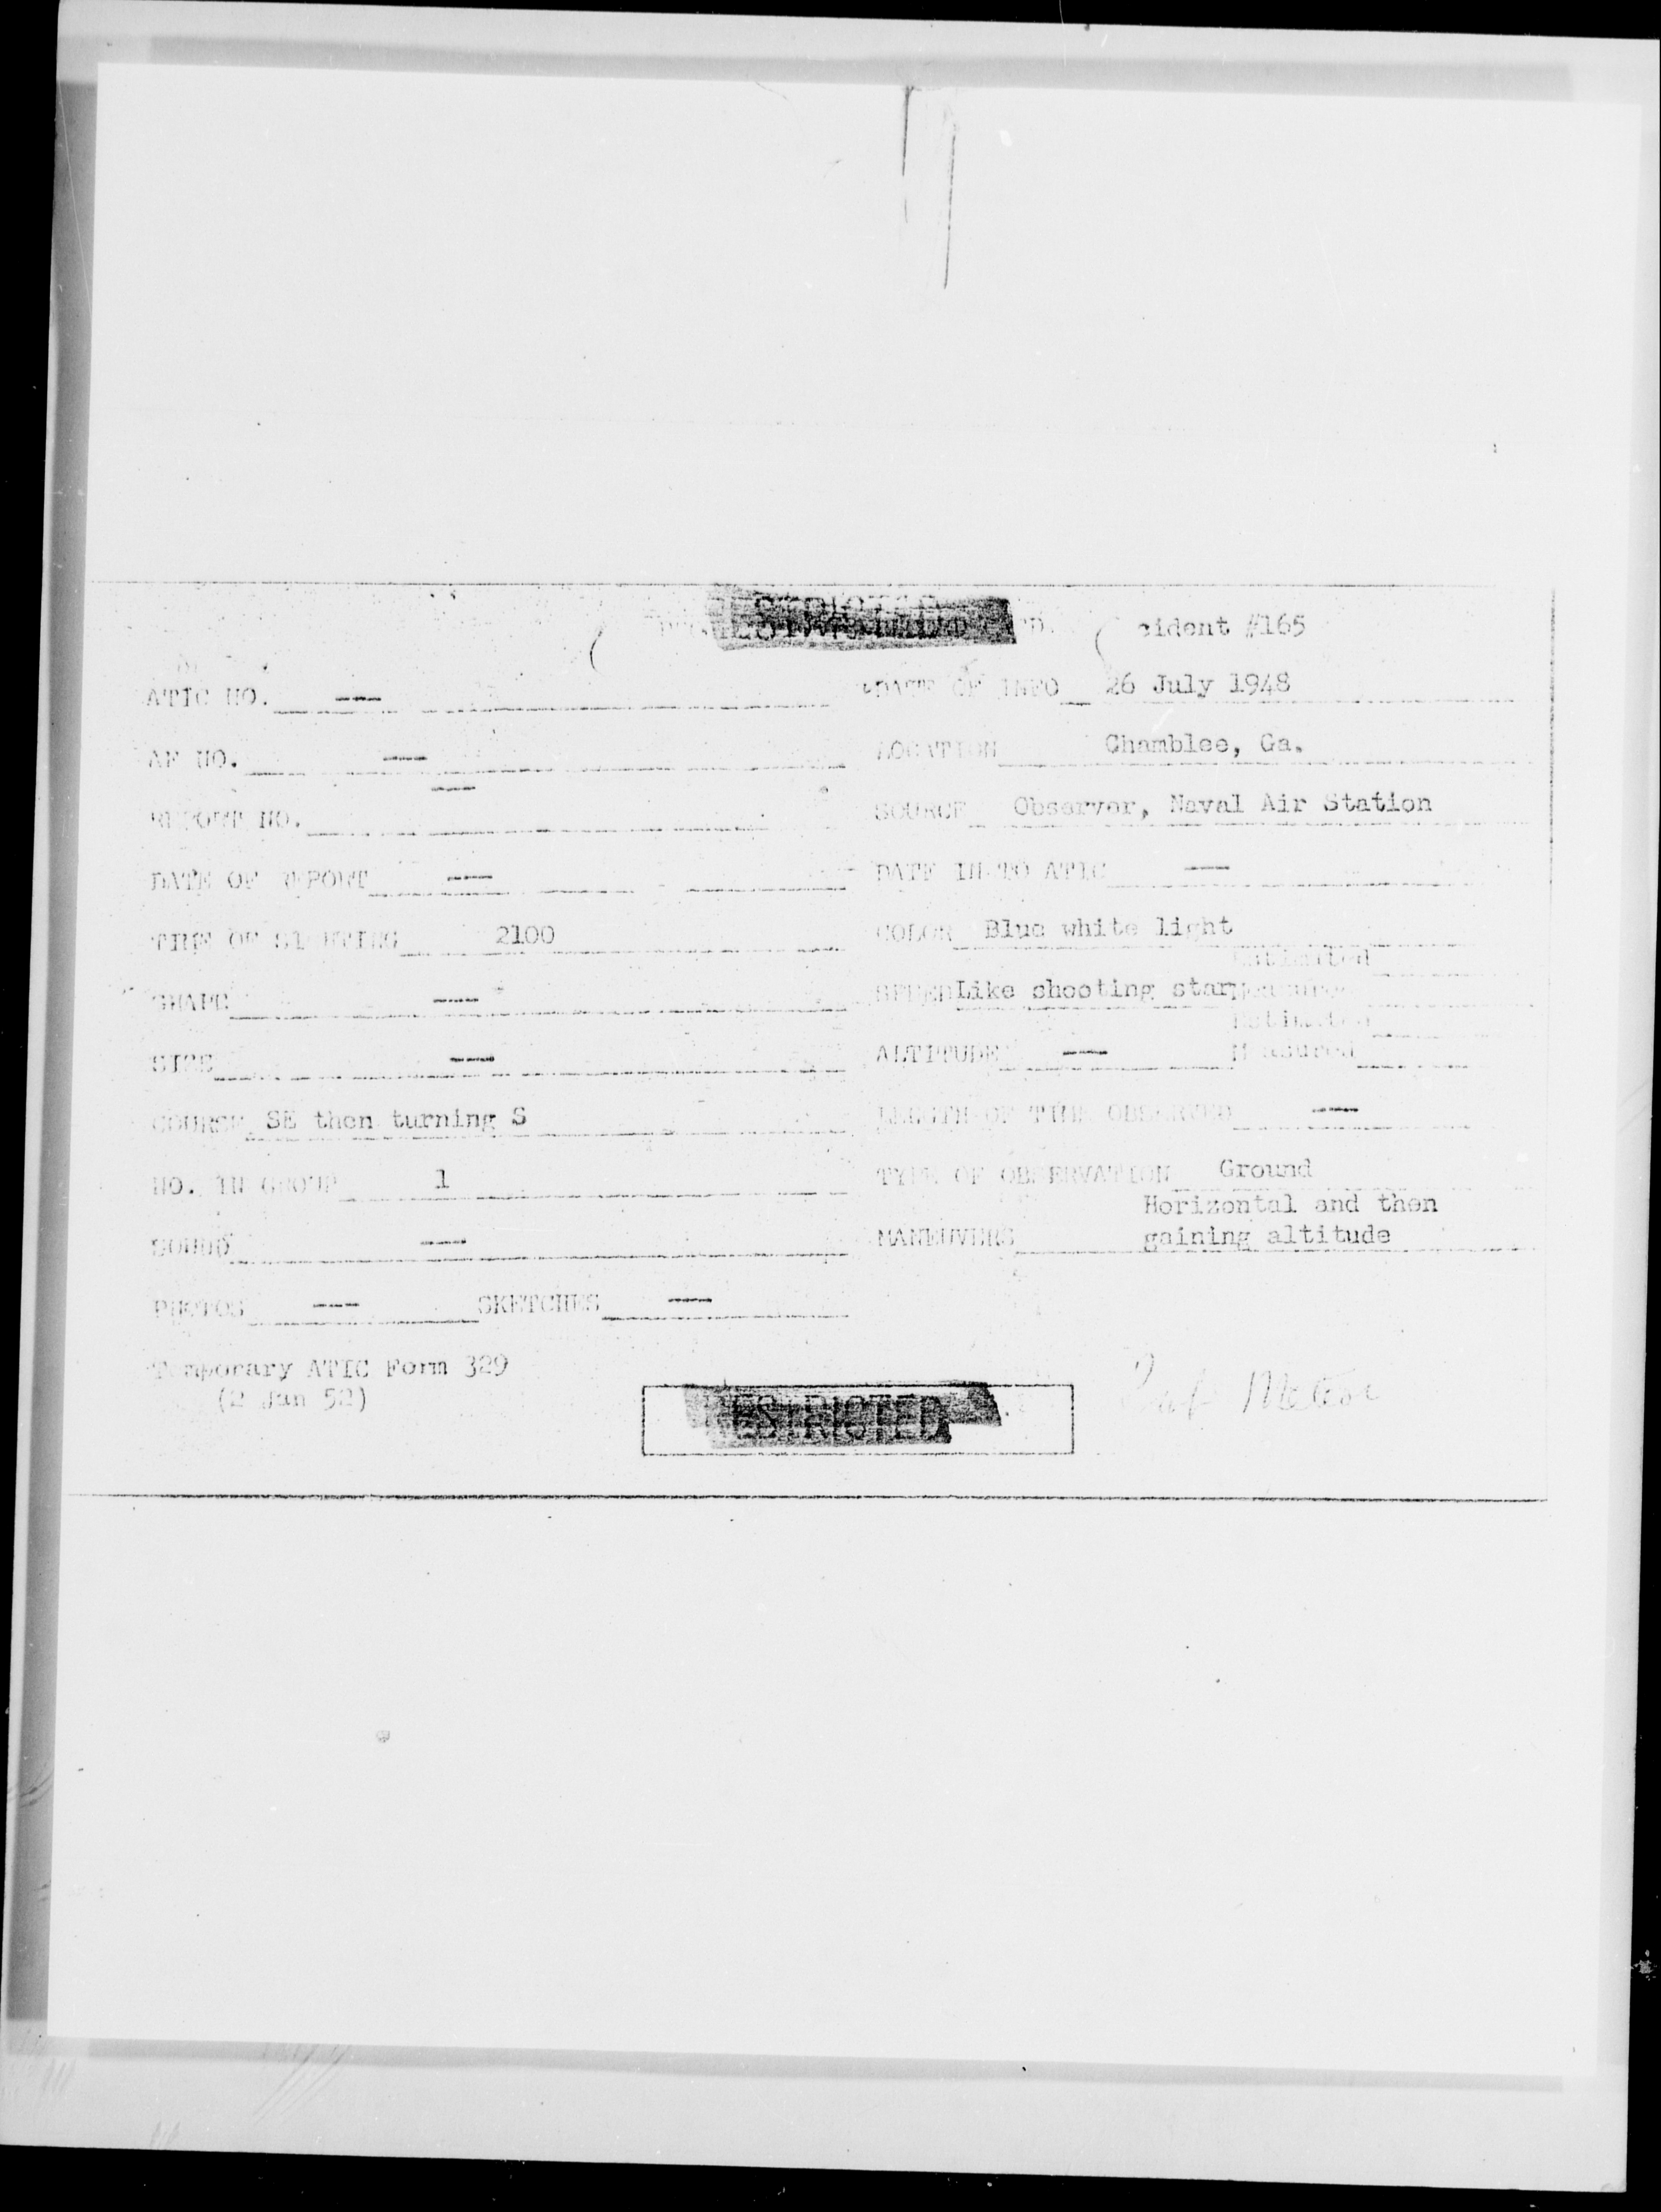 RESTRICTED
cident #165
ATIC NO. --- DATE OF INFO 26 July 1948
AF NO. --- LOCATION Chamblee, Ga.
REPORT NO. --- SOURCE Observer, Naval Air Station
DATE OF REPORT --- DATE IN TO ATIC ---
TIME OF SIGHTING 2100 COLOR Blue white light
Estimated
SHAPE --- SPEED Like shooting star Measured
Estimated
SIZE --- ALTITUDE --- Measured
COURSE SE then turning S LENGTH OF TIME OBSERVED ---
NO. IN GROUP 1 TYPE OF OBSERVATION Ground
Horizontal and then
SOUND --- MANEUVERS gaining altitude
PHOTOS --- SKETCHES ---
Temporary ATIC Form 329
(2 Jan 52)
RESTRICTED
Meteor